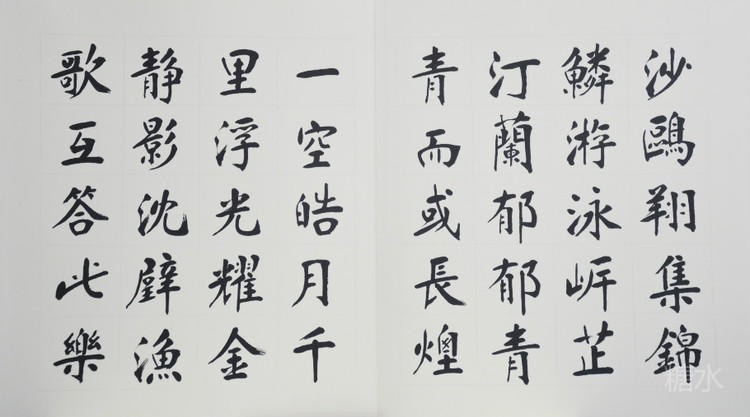 沙鷗翔集錦
鱗游泳岸芷
汀蘭郁郁青
青而或長煙
一空皓月千
里浮光耀金
静影沈璧漁
歌互答此樂
糖水